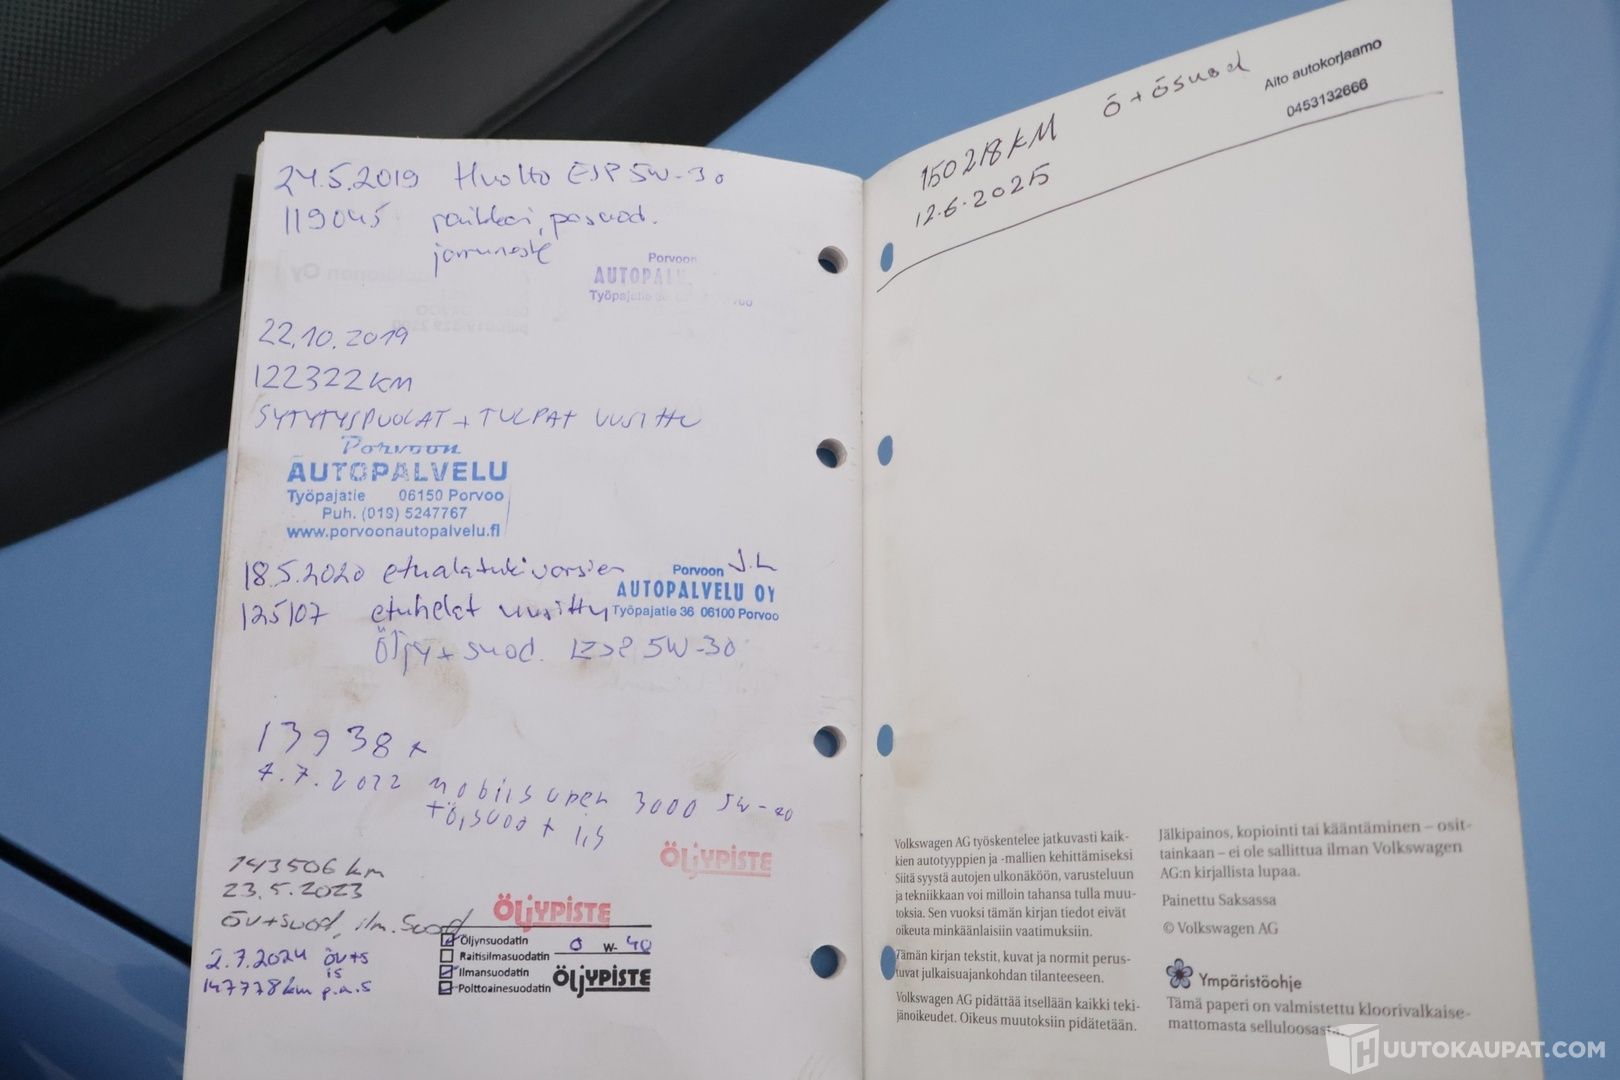 24.5.2019 Huolto ESP 5W-30
119045 raikkai, posuod.
jarruneste
Porvoon
AUTOPAL
Työpajatie
22.10.2019
122322 KM
SYTYTYSPUOLAT + TULPAT UUSITTU
Porvoon
AUTOPALVELU
Työpajatie 06150 Porvoo
Puh. (019) 5247767
www.porvoonautopalvelu.fi
18.5.2020 etualatukivarsien
Porvoon J.L
AUTOPALVELU OY
125107 etuhelat uusittu
Työpajatie 36 06100 Porvoo
Öljy + suod. 5W-30
13938
7.7.2022 3000 5W-
ÖLJYPISTE
143506 km
23.5.2023
öv+suod, ilm. suod
ÖLJYPISTE
Öljynsuodatin 0 W- 40
Raitisilmasuodatin
Ilmansuodatin
Polttoainesuodatin
ÖLJYPISTE
2.7.2024 öv+s
is
147778 km p.a.s
150218 KM ö + ösuod
12.6.2025
Aito autokorjaamo
0453132666
Volkswagen AG työskentelee jatkuvasti kaik-
kien autotyyppien ja -mallien kehittämiseksi
Siitä syystä autojen ulkonäköön, varusteluun
ja tekniikkaan voi milloin tahansa tulla muu-
toksia. Sen vuoksi tämän kirjan tiedot eivät
oikeuta minkäänlaisiin vaatimuksiin.
Tämän kirjan tekstit, kuvat ja normit perus-
tuvat julkaisuajankohdan tilanteeseen.
Volkswagen AG pidättää itsellään kaikki teki-
jänoikeudet. Oikeus muutoksiin pidätetään.
Jälkipainos, kopiointi tai kääntäminen – osit-
tainkaan – ei ole sallittua ilman Volkswagen
AG:n kirjallista lupaa.
Painettu Saksassa
© Volkswagen AG
Ympäristöohje
Tämä paperi on valmistettu kloorivalkaise-
mattomasta selluloosasta.
HUUTOKAUPAT.COM